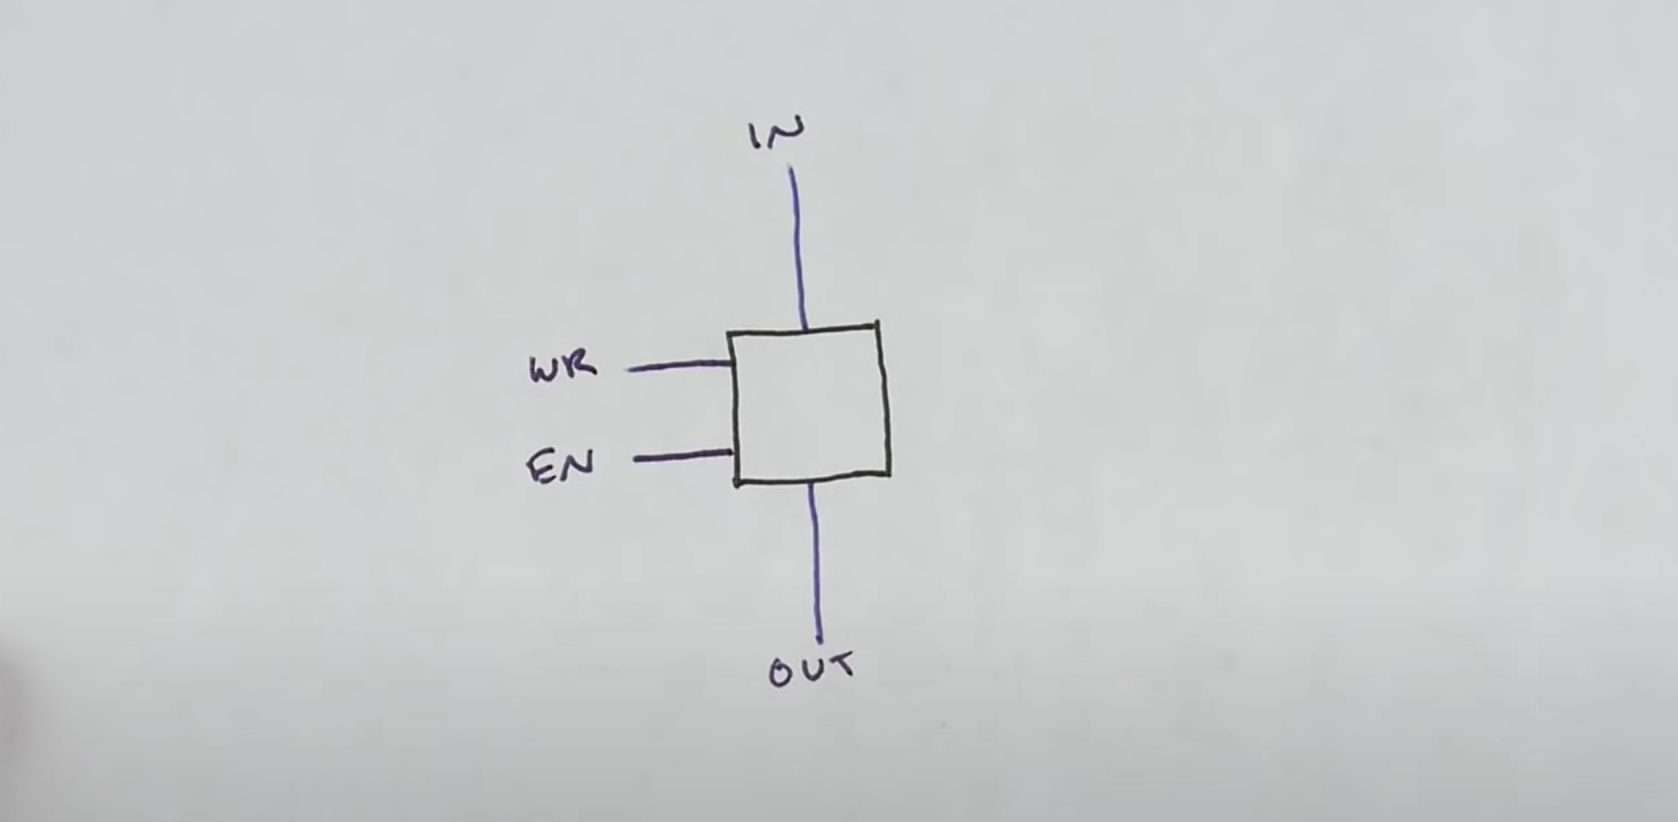 IN
WR
EN
OUT